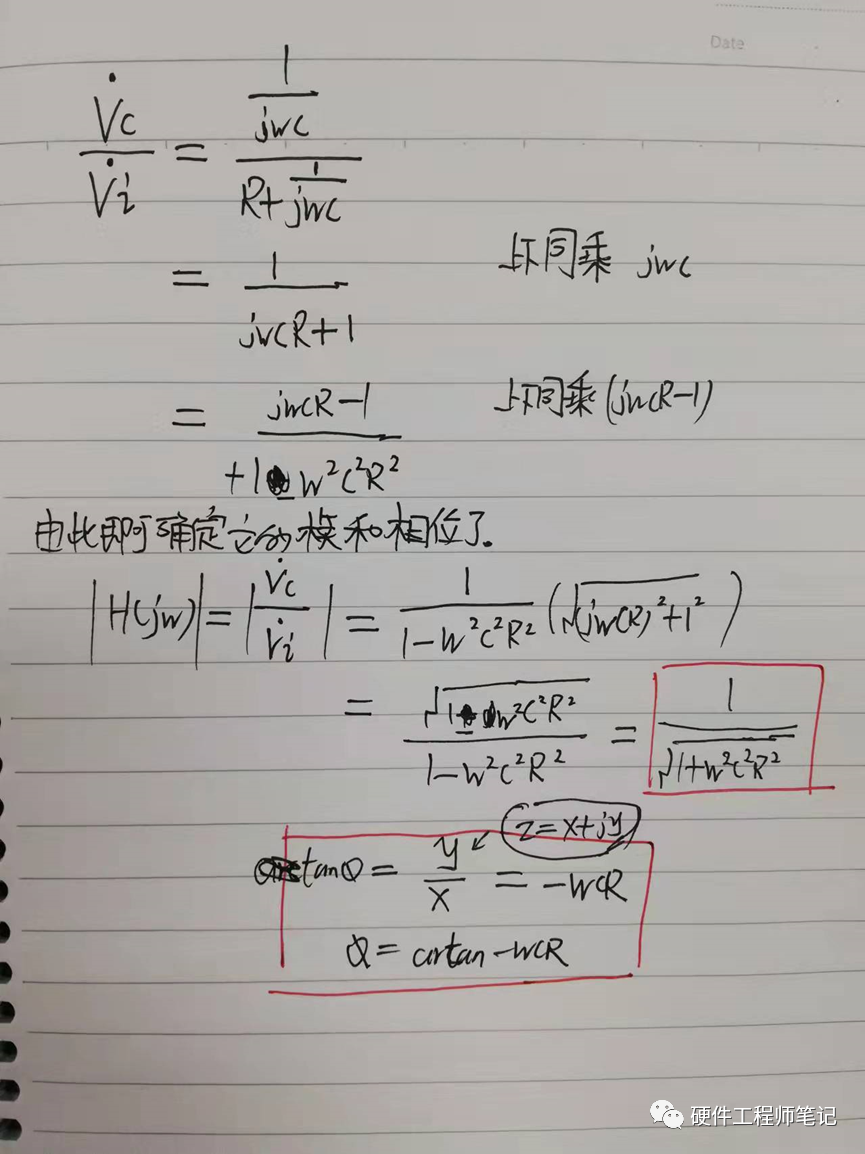 Date
V̇c/V̇i = (1/jwc)/(R+1/jwc)
= 1/(jwCR+1) 上下同乘 jwc
= (jwCR-1)/(+1 w²c²R²) 上下同乘(jwCR-1)
由此即可确定它的模和相位了.
|H(jw)| = |V̇c/V̇i| = 1/(1-w²c²R²) (√((jwCR)²+1²))
= √(1 w²c²R²)/(1-w²c²R²) = 1/√(1+w²c²R²)
z=x+jy
tanθ = y/x = -wCR
θ = artan-wCR
硬件工程师笔记